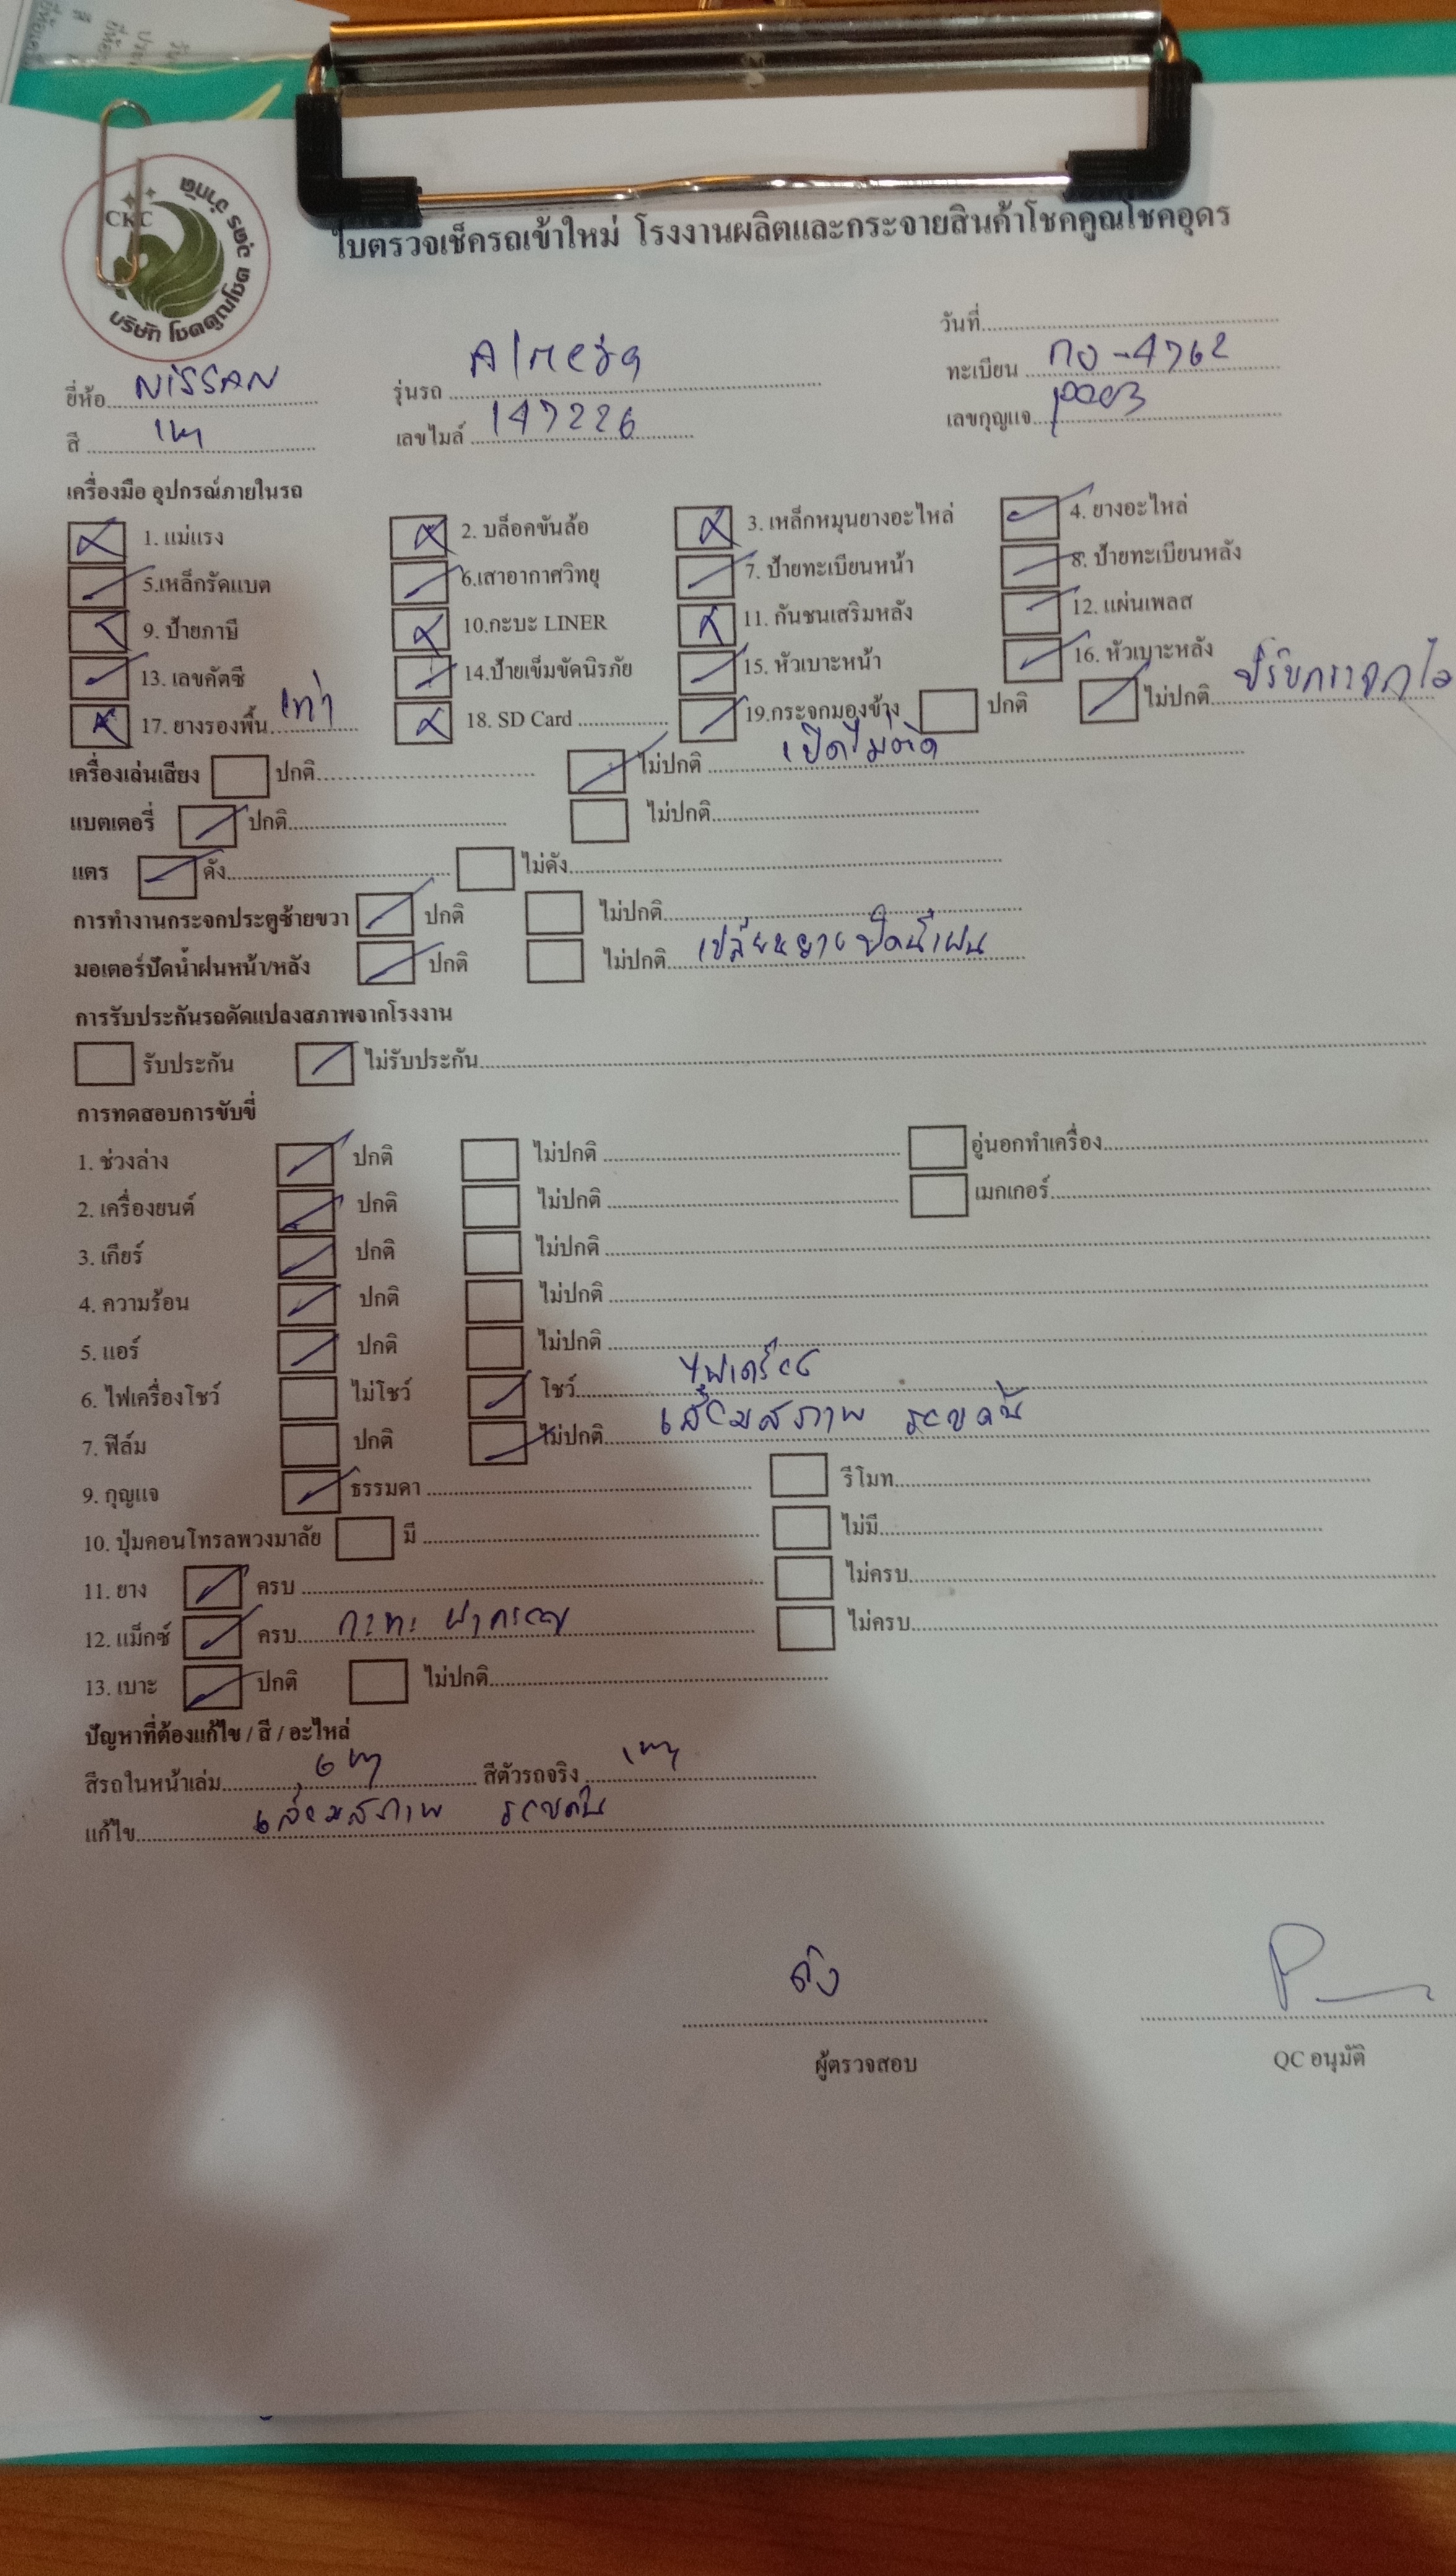 CKC
บริษัท โชคคูณโชค อุดร จำกัด
ใบตรวจเช็ครถเข้าใหม่ โรงงานผลิตและกระจายสินค้าโชคคูณโชคอุดร
วันที่
ยี่ห้อ NISSAN รุ่นรถ Almera ทะเบียน กอ-4762
สี เทา เลขไมล์ 147226 เลขกุญแจ
เครื่องมือ อุปกรณ์ภายในรถ
1. แม่แรง 2. บล็อคขันล้อ 3. เหล็กหมุนยางอะไหล่ 4. ยางอะไหล่
5.เหล็กรัดแบต 6.เสาอากาศวิทยุ 7. ป้ายทะเบียนหน้า 8. ป้ายทะเบียนหลัง
9. ป้ายภาษี 10.กะบะ LINER 11. กันชนเสริมหลัง 12. แผ่นเพลส
13. เลขคัตซี 14.ป้ายเข็มขัดนิรภัย 15. หัวเบาะหน้า 16. หัวเบาะหลัง
17. ยางรองพื้น เทา 18. SD Card 19.กระจกมองข้าง ปกติ ไม่ปกติ
เครื่องเล่นเสียง ปกติ ไม่ปกติ เปิดไม่ติด
แบตเตอรี่ ปกติ ไม่ปกติ
แตร ดัง ไม่ดัง
การทำงานกระจกประตูซ้ายขวา ปกติ ไม่ปกติ
มอเตอร์ปัดน้ำฝนหน้า/หลัง ปกติ ไม่ปกติ เปลี่ยนยางปัดน้ำฝน
การรับประกันรถดัดแปลงสภาพจากโรงงาน
รับประกัน ไม่รับประกัน
การทดสอบการขับขี่
1. ช่วงล่าง ปกติ ไม่ปกติ อู่นอกทำเครื่อง
2. เครื่องยนต์ ปกติ ไม่ปกติ เมกเกอร์
3. เกียร์ ปกติ ไม่ปกติ
4. ความร้อน ปกติ ไม่ปกติ
5. แอร์ ปกติ ไม่ปกติ
6. ไฟเครื่องโชว์ ไม่โชว์ โชว์ ไฟเครื่อง
7. ฟิล์ม ปกติ ไม่ปกติ เสื่อมสภาพ รอบคัน
9. กุญแจ ธรรมดา รีโมท
10. ปุ่มคอนโทรลพวงมาลัย มี ไม่มี
11. ยาง ครบ ไม่ครบ
12. แม็กซ์ ครบ กะทะ ฝาครอบ ไม่ครบ
13. เบาะ ปกติ ไม่ปกติ
ปัญหาที่ต้องแก้ไข / สี / อะไหล่
สีรถในหน้าเล่ม เทา สีตัวรถจริง เทา
แก้ไข เสื่อมสภาพ รอบคัน
ผู้ตรวจสอบ QC อนุมัติ